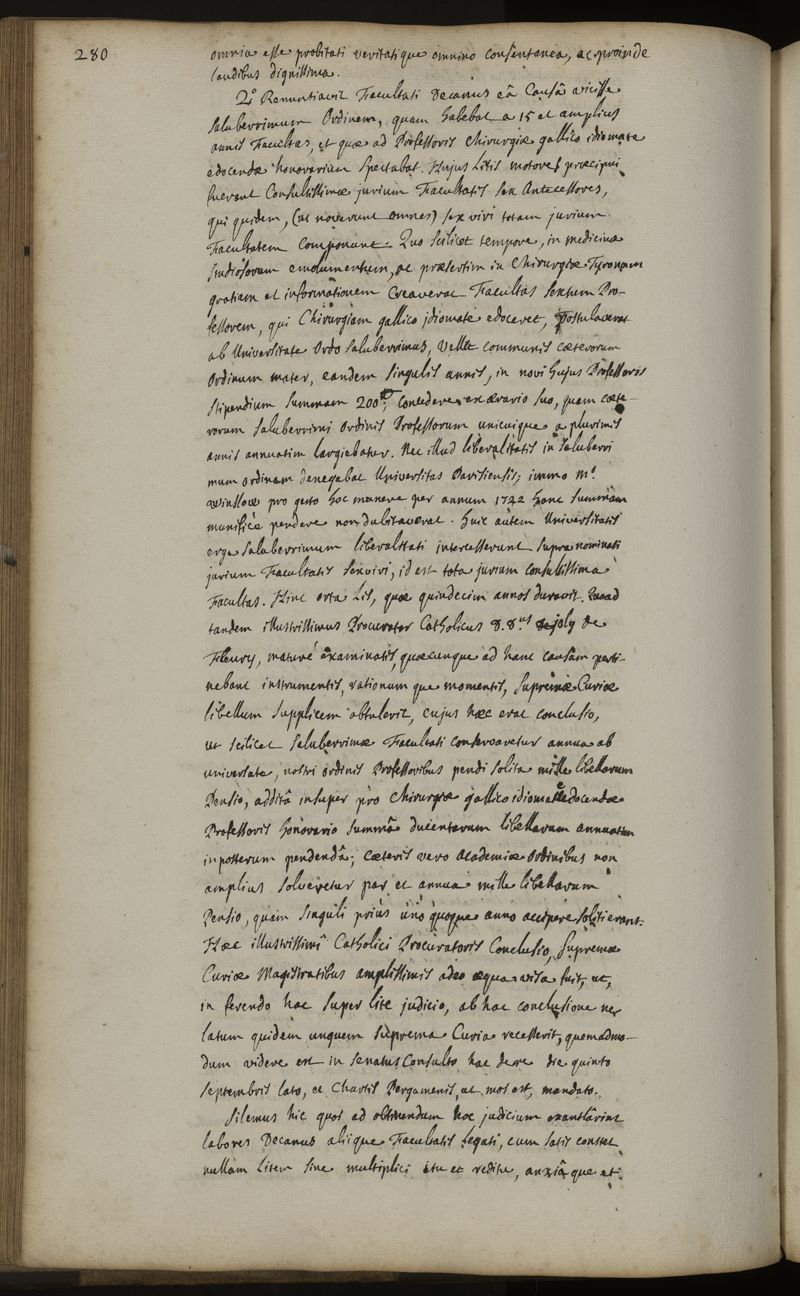 280
omnia esse probitati veritatique omnino consentanea, ac proinde
laudibus dignissima.
2.º Renuntiavit Facultati Decanus eâ Causâ vicisse
saluberrimum Ordinem, quam habebat a 15 et amplius
annis Facultas, et quæ ad Professoris chirurgiæ gallico idiomate
edocendæ honorarium spectabat. Hujus Litis motores præcipui
fuerant Consultissimæ jurium Facultatis sex Antecessores,
qui quidem, (ut noverunt omnes) sex viri totam jurium
Facultatem componunt. Quo scilicet tempore, in medicinæ
studiosorum emolumentum, ac præsertim in Chirurgiæ Tyronum
gratiam et informationem Creaverat Facultas sextum Pro-
fessorem, qui Chirurgiam gallico idiomate edoceret, postulaverat
ab Universitate Ordo saluberrimus, vellet communis cæterorum
Ordinum mater, eandem singulis annis, in novi hujus Professoris
stipendium summam 200.tt, concedere ex ærario suo, quam cæte-
rorum saluberrimi ordinis Professorum unicuique a plurimis
annis annuatim largiebatur. Nec illud liberalitatis in saluberri
mum ordinem denegabat Universitas Parisiensis; immo m.r
Winslow pro gesto hoc munere per annum 1722 hanc summam
munificè pendere non dubitaverat. Huic autem Universitatis
erga saluberrimum liberalitati intercesserunt supra nominati
jurium Facultatis sexviri, id est tota jurium consultissima
Facultas. Hinc orta Lis, quæ quindecim annos duravit. Quoad
tandem illustrissimus Procurator Catholicus D. D.us joly de
Fleury, maturè examinatis, quæcunque ad hanc causam perti-
nebant instrumentis, rationumque momentis, supremæ Curiæ
libellum supplicem obtulerit, cujus hæc erat conclusio,
ut scilicet saluberrimæ Facultati conservaretur annua ab
universitate, nostri ordinis Professoribus pendi solita mille libellarum
Pensio, additâ insuper pro chirurgiæ gallico idiomate edocendæ
Professoris honorario summâ ducentarum libellarum annuatim
in posterum pendendâ; cæteris vero Academiæ Ordinibus non
amplius solveretur par et annua mille libellarum
Pensio, quam singuli priùs uno quoque anno accipere soliti erant.
Hæc illustrissimi Catholici Procuratoris Conclusio, supremæ
Curiæ Magistratibus amplissimis adeo æqua visa fuit, ut,
in ferendo hac super lite judicio, ab hac conclusione ne
latum quidem unguem suprema Curia recesserit, quemadmo-
dum videre est in senatus Consulto hac de re die quinto
septembris lato, et Chartis Pergamenis, ut mos est, mandato.
Silemus hic quot ad obtinendum hoc judicium exantlârint
labores Decanus aliique Facultatis Legati, cum satis constet
nullam Litem sine multiplici itu et reditu, anxiâque et